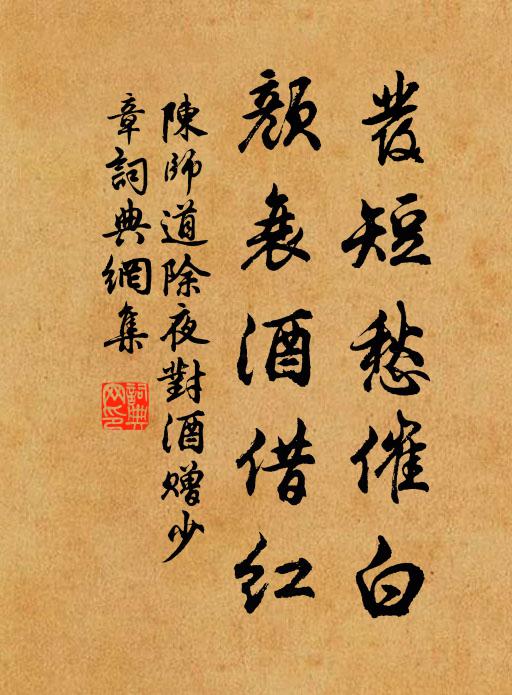 發短愁催白
顏衰酒借红
陳師道除夜對酒贈少
章詞典網集
詞典
网印